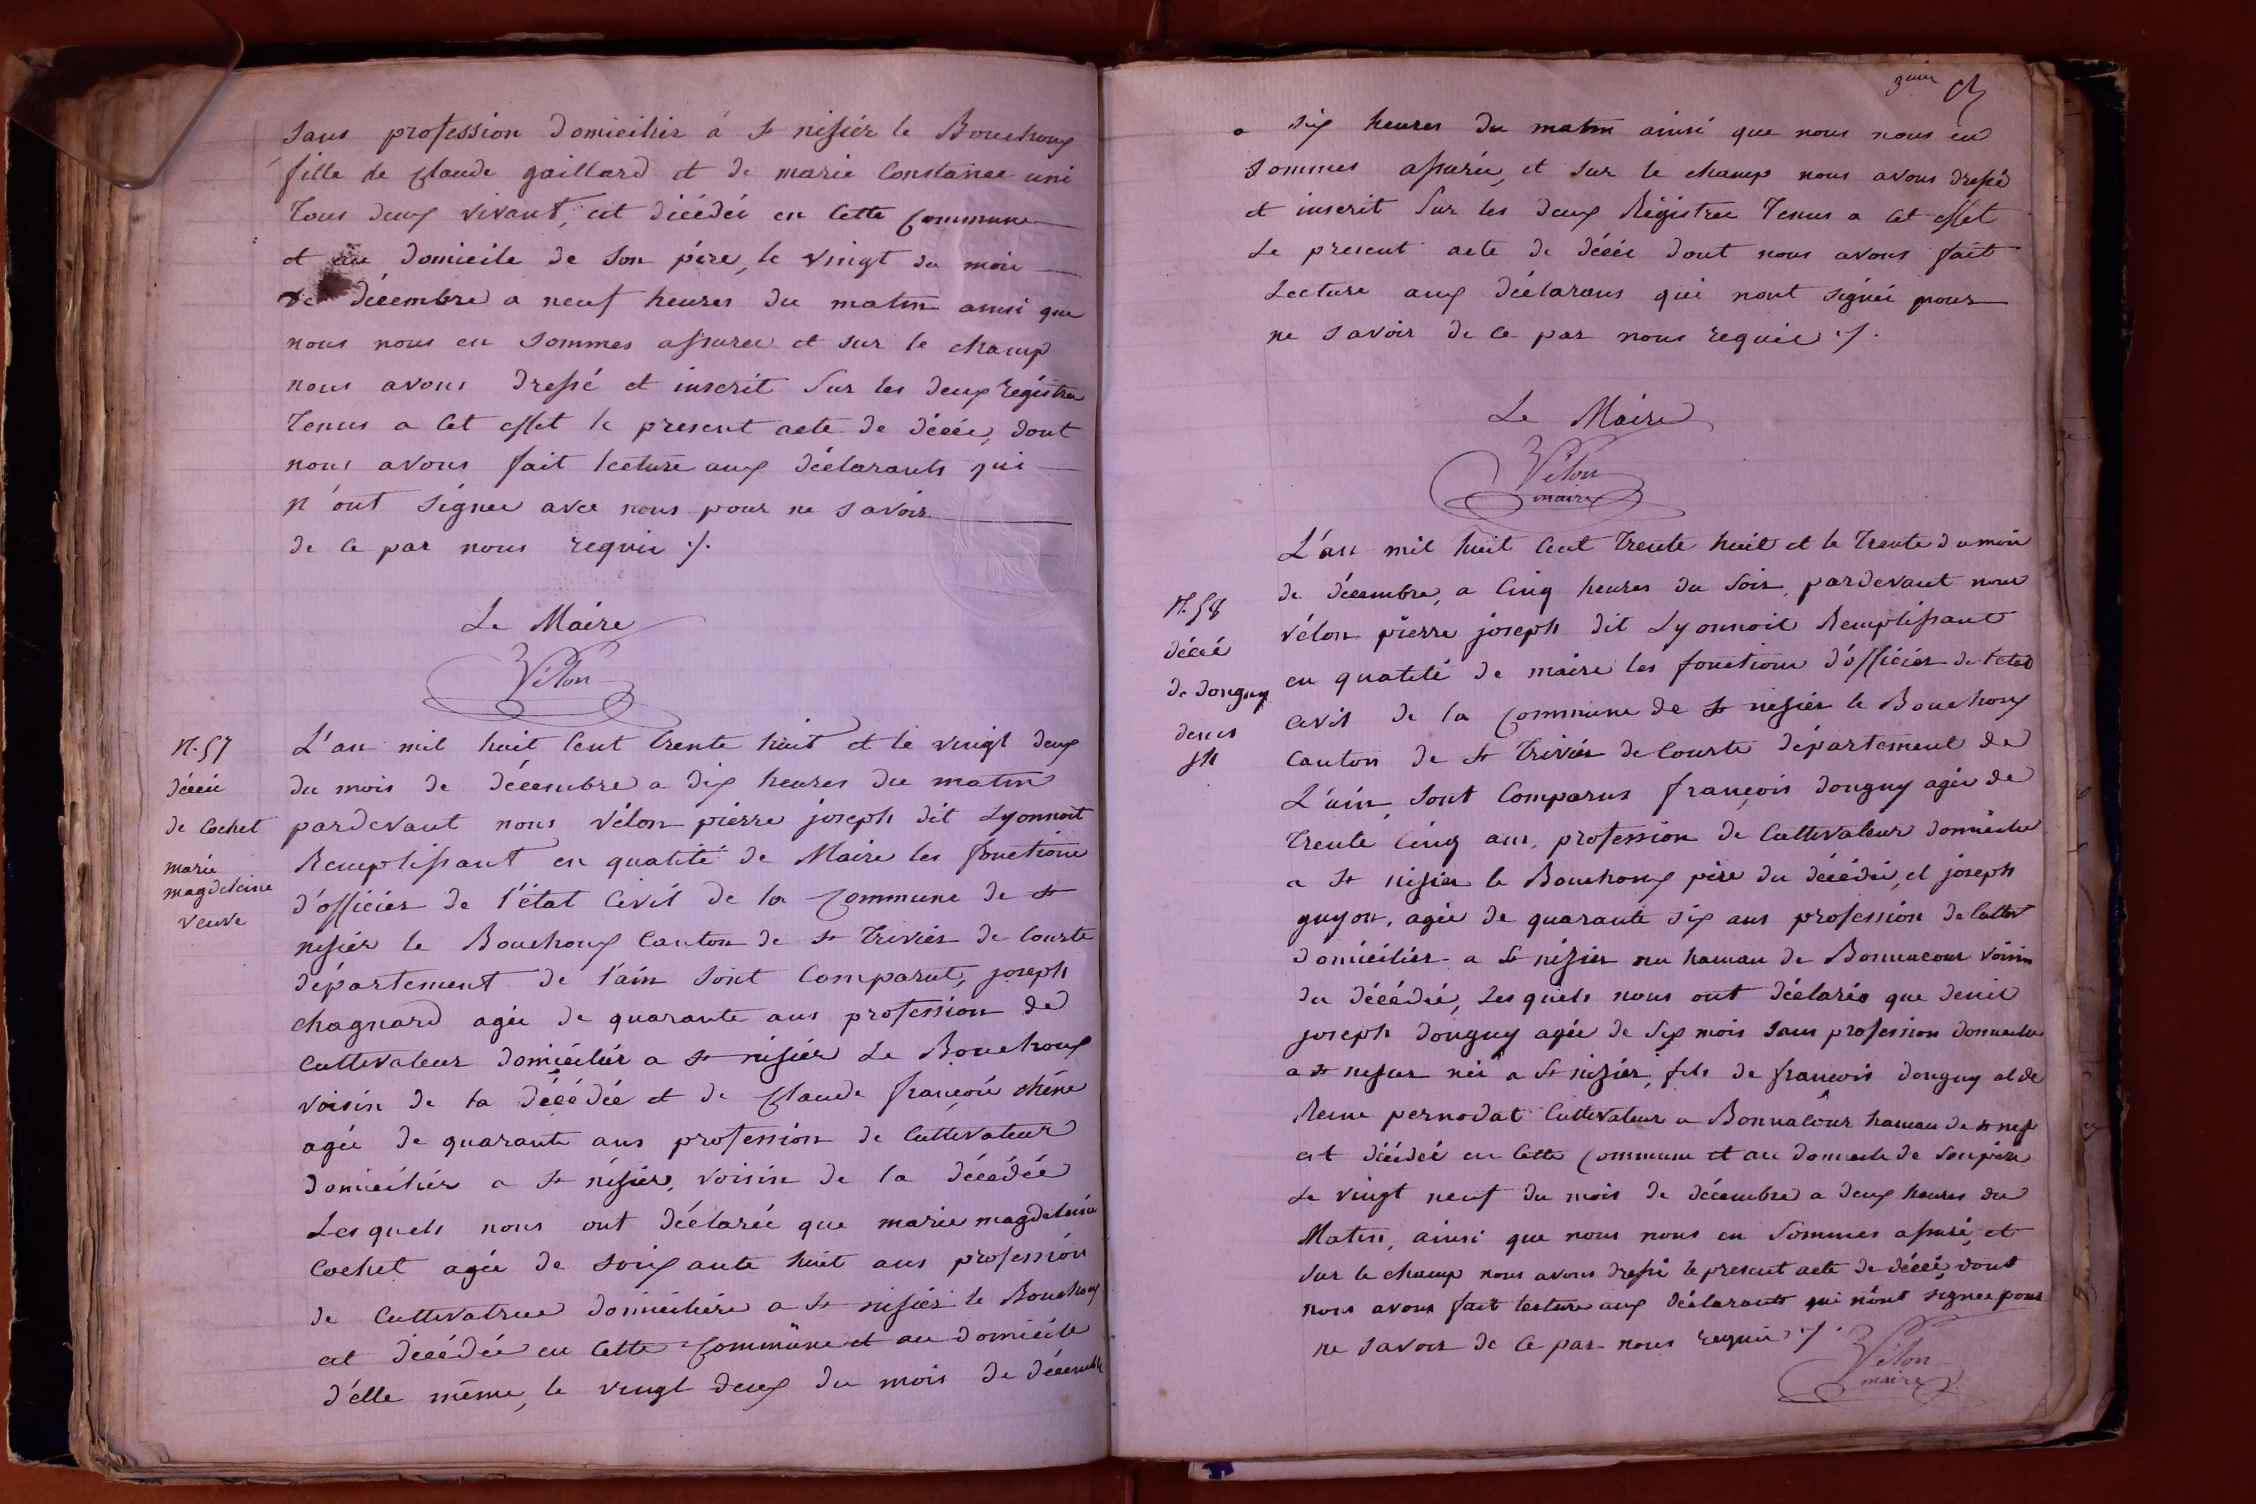 sans profession domicilier a St nisiér le Bouchoux
fille de Claude gaillard et de marie Constance uni
tous deux vivant, est décédéé en cette Commune
et au domicile de son pére, le vingt du mois
de décembre a neuf heures du matin ainsi que
nous nous en sommes assurée et sur le champ
nous avons dressé et inscrit sur les deux régistres
tenus a cet effet le present acte de décée, dont
nous avons fait lecture aux déclarants qui
n'ont signee avec nous pour ne savoir
de ce par nous requie ./.
Le Maire
Vélon
N. 57
décéé
de Cochet
marie
magdeleine
veuve
L'an mil huit cent trente huit et le vingt deux
du mois de décembre a dix heures du matin
pardevant nous vélon piérre joseph dit Lyonnoit
Remplissant en qualité de Maire les fonctions
d'officiér de l'état Civil de la Commune de St
nisiér le Bouchoux Canton de St Triviér de Courte
département de l'ain sont Comparut, joseph
chagnard agée de quarante ans profession de
Cultivateur domiciliér a St nisiér Le Bouchoux
voisin de la décédée et de Claude françois chéne
agée de quarante ans profession de Cultivateur
domiciliér a St nisiér, voisin de la décédée
Les quels nous ont déclarée que marie magdeleine
Cochet agée de soixante huit ans profession
de Cultivatrice domiciliére a St nisiér le Bouchoux
est décédée en Cette Commune et au domicile
d'elle méme, le vingt deux du mois de décembre
a six heures du matin ainsi que nous nous en
sommes assurée, et sur le champ nous avons dressé
et inscrit sur les deux Régistree tenus a cet effet
Le present acte de décée dont nous avons fait
Lecture aux déclarans qui nont signéé pour
ne savoir de ce par nous requie ./.
Le Maire
Vélon
maire
N. 58
décéé
de donguy
denis
jh
L'an mil huit cent trente huit et le trente du mois
de décembre, a cinq heures du soir, pardevant nous
vélon piérre joseph dit Lyonnoit Remplissant
en qualité de maire les fonctions d'officiér de l'etat
civil de la Commune de St nisiér le Bouchoux
Canton de St Triviér de Courte département de
L'ain, sont Comparus françois donguy agée de
trente cinq ans, profession de Cultivateur domicilié
a St nisiér le Bouchoux pére du décédé, et joseph
guyon, agée de quarante six ans profession de Cultivr
domiciliér a St nisiér au hamau de Bonnacour voisin
du décédé, Les quels nous ont déclarés que denis
joseph donguy agée de six mois sans profession domicilié
a St nisiér néé a St nisiér, fils de françois donguy et de
Reine pernodat Cultivateur a Bonnacour hamau de St nisr
est décédéé en Cette Commune et au domicile de son pére
Le vingt neuf du mois de décembre a deux heures du
Matin, ainsi que nous nous en sommes assuré, et
sur le champ nous avons dressé le present acte de décéé dont
nous avons fait lecture aux déclarants qui n'ont signee pour
ne savoir de ce par nous requie ./.
Vélon
maire